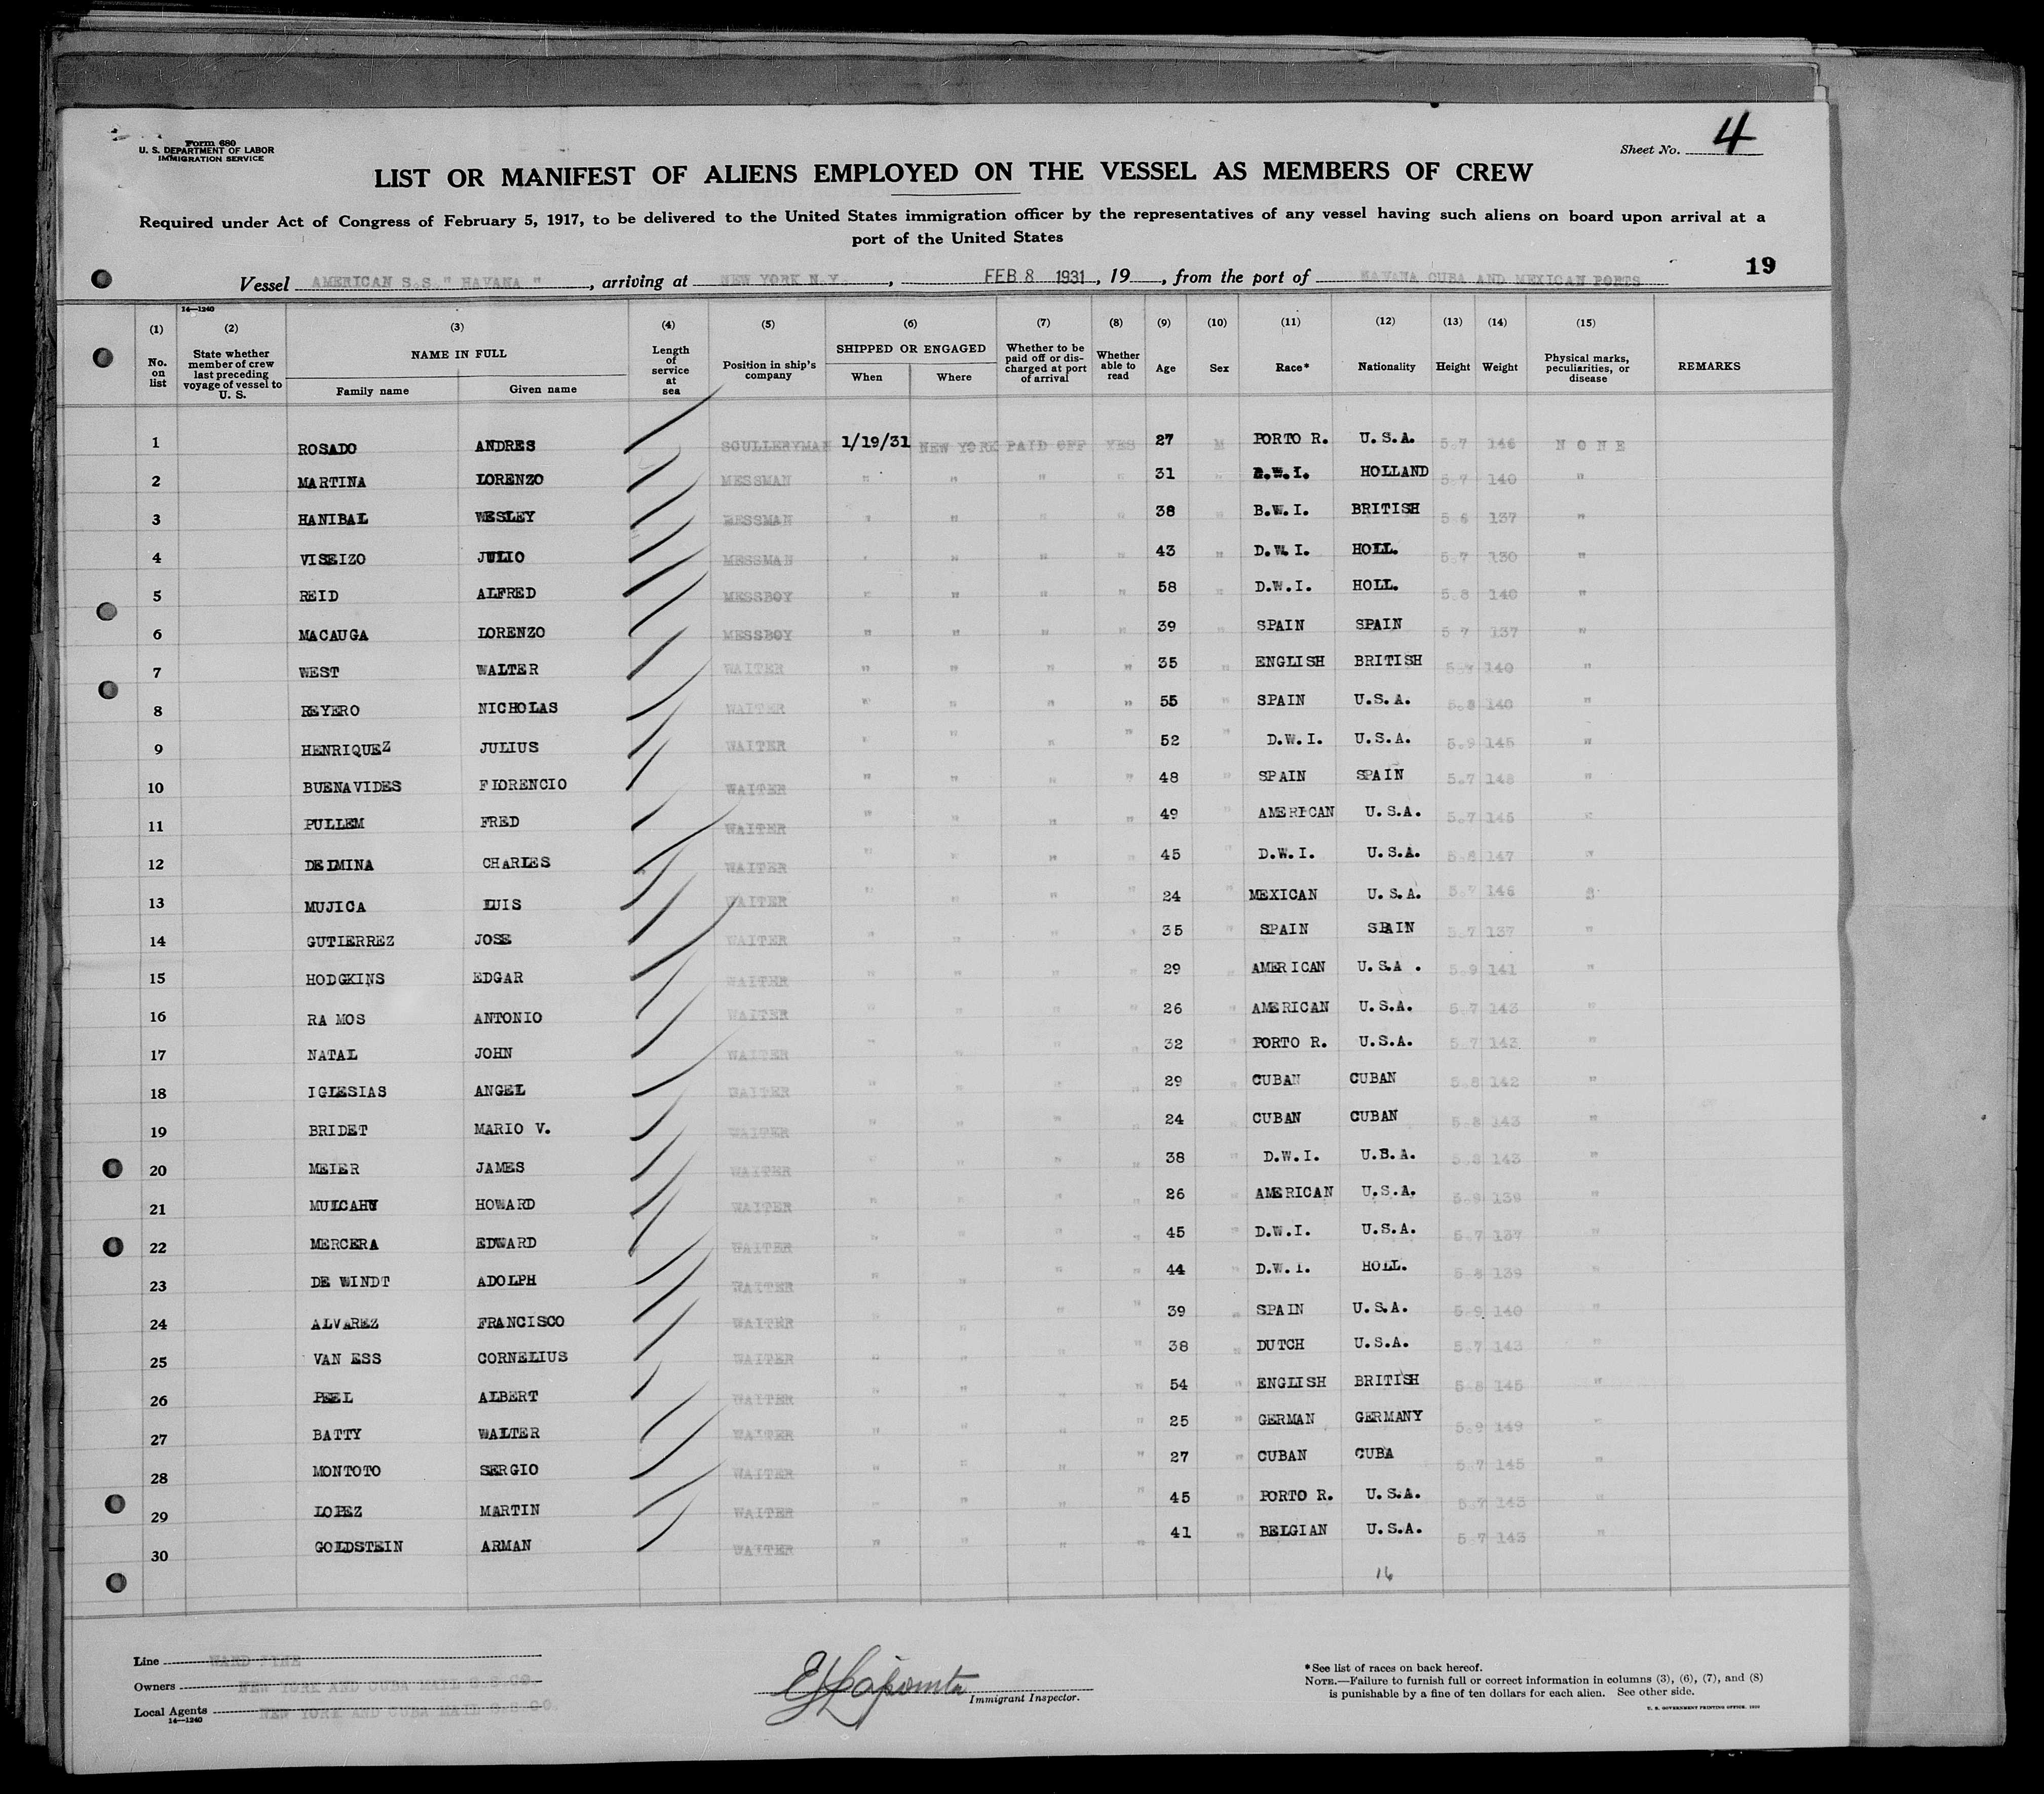 Form 680
U. S. DEPARTMENT OF LABOR
IMMIGRATION SERVICE
Sheet No. 4
LIST OR MANIFEST OF ALIENS EMPLOYED ON THE VESSEL AS MEMBERS OF CREW
Required under Act of Congress of February 5, 1917, to be delivered to the United States immigration officer by the representatives of any vessel having such aliens on board upon arrival at a
port of the United States
19
Vessel AMERICAN S.S. " HAVANA " , arriving at NEW YORK N.Y. , FEB 8 1931 , 19 , from the port of HAVANA CUBA AND MEXICAN PORTS
14—1240
(1) (2) (3) (4) (5) (6) (7) (8) (9) (10) (11) (12) (13) (14) (15)
No. on list
State whether member of crew last preceding voyage of vessel to U. S.
NAME IN FULL
Family name
Given name
Length of service at sea
Position in ship's company
SHIPPED OR ENGAGED
When
Where
Whether to be paid off or discharged at port of arrival
Whether able to read
Age
Sex
Race*
Nationality
Height
Weight
Physical marks, peculiarities, or disease
REMARKS
1 ROSADO ANDRES SCULLERYMAN 1/19/31 NEW YORK PAID OFF YES 27 M PORTO R. U.S.A. 5.7 146 NONE
2 MARTINA LORENZO MESSMAN " " " " 31 " D.W.I. HOLLAND 5 7 140 "
3 HANIBAL WESLEY MESSMAN " " " " 38 " B.W.I. BRITISH 5 6 137 "
4 VISEIZO JULIO MESSMAN " " " " 43 " D.W.I. HOLL. 5.7 130 "
5 REID ALFRED MESSBOY " " " " 58 " D.W.I. HOLL. 5.8 140 "
6 MACAUGA LORENZO MESSBOY " " " " 39 " SPAIN SPAIN 5 7 137 "
7 WEST WALTER WAITER " " " " 35 " ENGLISH BRITISH 140 "
8 REYERO NICHOLAS WAITER " " " " 55 " SPAIN U.S.A. 5.8 140 "
9 HENRIQUEZ JULIUS WAITER " " " " 52 " D.W.I. U.S.A. 5.9 145 "
10 BUENAVIDES FLORENCIO WAITER " " " " 48 " SPAIN SPAIN 5.7 148 "
11 PULLEM FRED WAITER " " " " 49 " AMERICAN U.S.A. 5.7 145 "
12 DELMINA CHARLES WAITER " " " " 45 " D.W.I. U.S.A. 5.8 147 "
13 MUJICA LUIS WAITER " " " " 24 " MEXICAN U.S.A. 5.7 146 "
14 GUTIERREZ JOSE WAITER " " " " 35 " SPAIN SPAIN 5.7 137 "
15 HODGKINS EDGAR WAITER " " " " 29 " AMERICAN U.S.A . 5.9 141 "
16 RA MOS ANTONIO WAITER " " " " 26 " AMERICAN U.S.A. 5 7 143 "
17 NATAL JOHN WAITER " " " " 32 " PORTO R. U.S.A. 5 7 143 "
18 IGLESIAS ANGEL WAITER " " " " 29 " CUBAN CUBAN 5.8 142 "
19 BRIDET MARIO V. WAITER " " " " 24 " CUBAN CUBAN 5.8 143 "
20 MEIER JAMES WAITER " " " " 38 " D.W.I. U.S.A. 5.8 143 "
21 MULCAHY HOWARD WAITER " " " " 26 " AMERICAN U.S.A. 139 "
22 MERCERA EDWARD WAITER " " " " 45 " D.W.I. U.S.A. 5.7 137 "
23 DE WINDT ADOLPH WAITER " " " " 44 " D.W.I. HOLL. 5 8 139 "
24 ALVAREZ FRANCISCO WAITER " " " " 39 " SPAIN U.S.A. 5.9 140 "
25 VAN ESS CORNELIUS WAITER " " " " 38 " DUTCH U.S.A. 5.7 143 "
26 PEEL ALBERT WAITER " " " " 54 " ENGLISH BRITISH 5 8 145 "
27 BATTY WALTER WAITER " " " " 25 " GERMAN GERMANY 5.9 149 "
28 MONTOTO SERGIO WAITER " " " " 27 " CUBAN CUBA 5.7 145 "
29 LOPEZ MARTIN WAITER " " " " 45 " PORTO R. U.S.A. 5.7 143 "
30 GOLDSTEIN ARMAN WAITER " " " " 41 " BELGIAN U.S.A. 5 7 143 "
16
Line WARD LINE
Owners NEW YORK AND CUBA MAIL S.S.CO.
Local Agents NEW YORK AND CUBA MAIL S.S.CO.
14—1240
Immigrant Inspector.
*See list of races on back hereof.
NOTE.—Failure to furnish full or correct information in columns (3), (6), (7), and (8)
is punishable by a fine of ten dollars for each alien. See other side.
U. S. GOVERNMENT PRINTING OFFICE: 1930